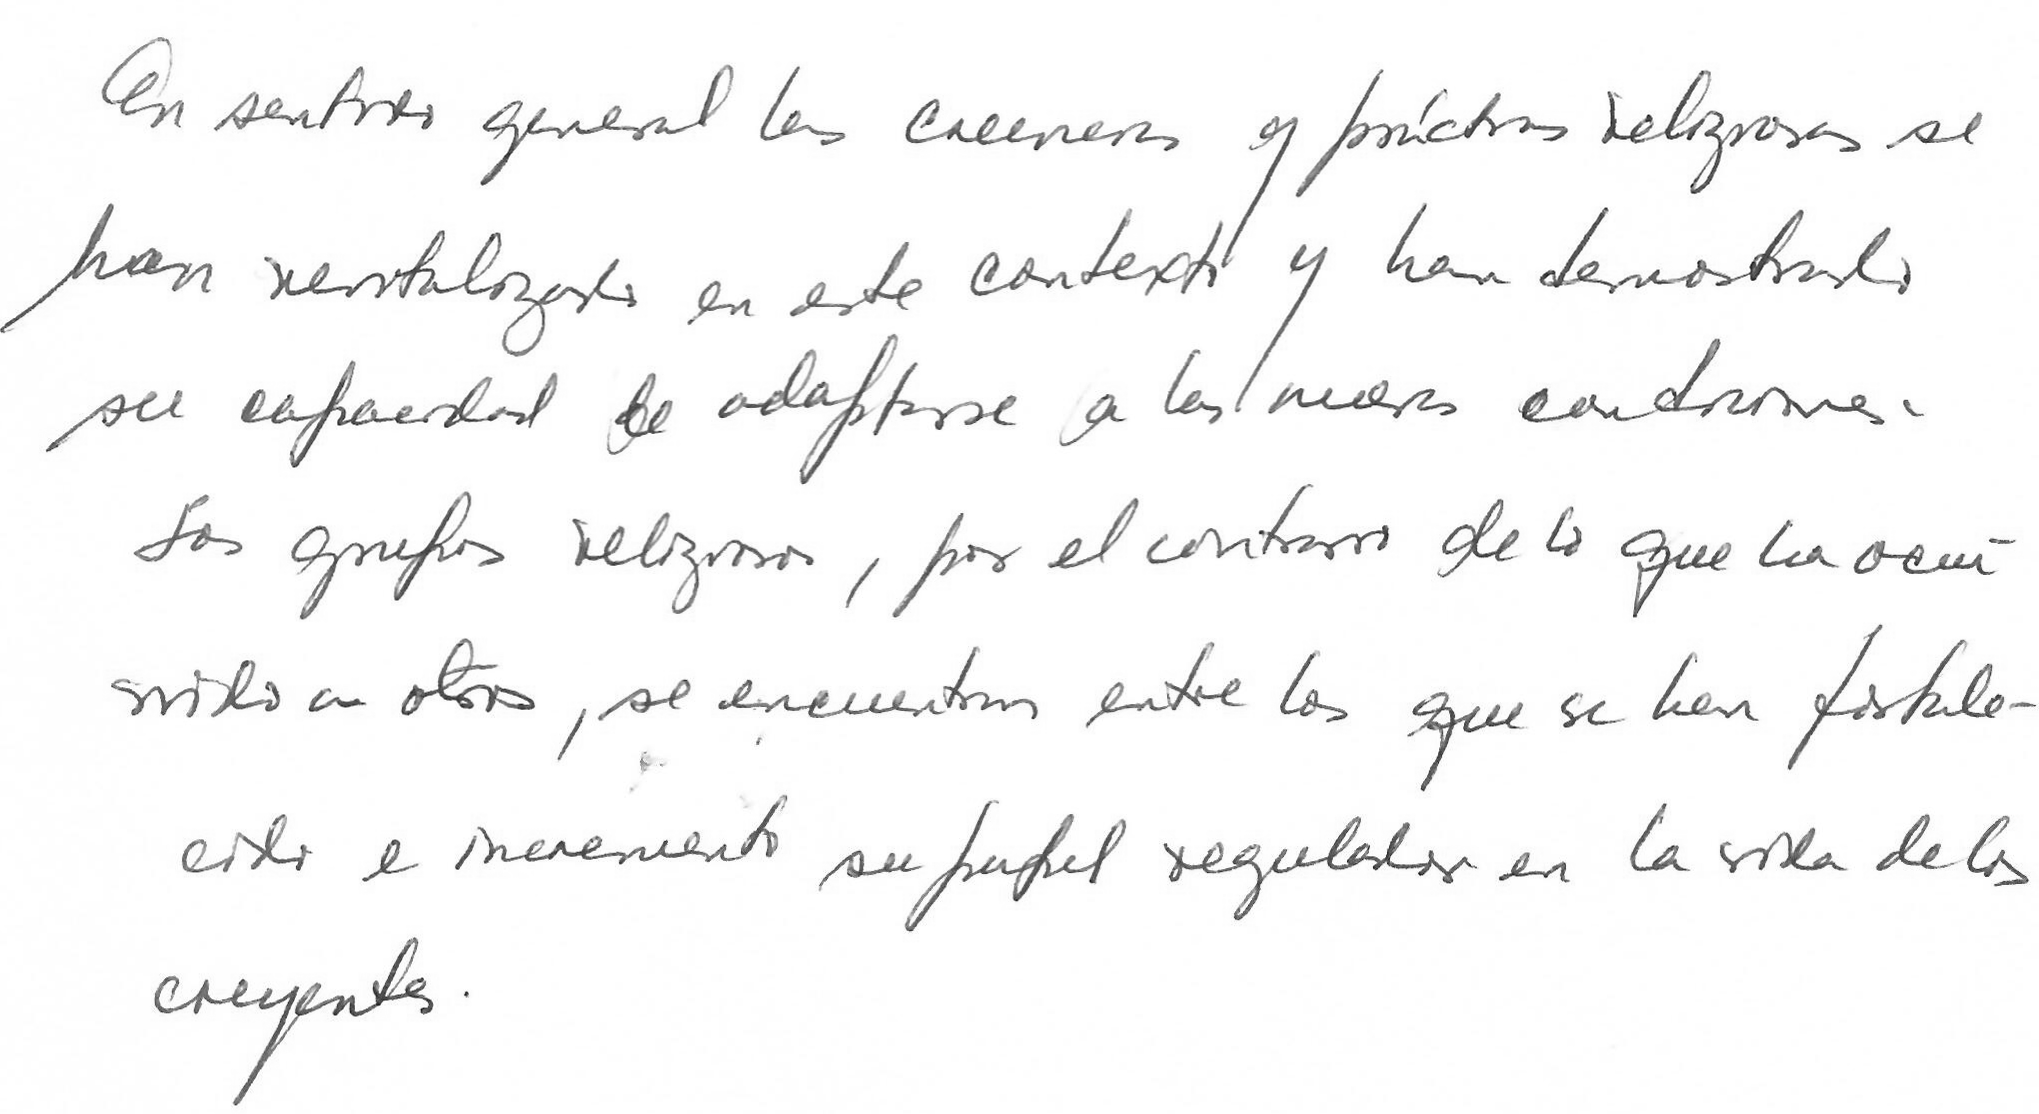 En sentido general las creencias y prácticas religiosas se
han revitalizado en este contexto y han demostrado
su capacidad de adaptarse a las nuevas condiciones.
Los grupos religiosos, por el contrario de lo que ha ocu-
rrido a otros, se encuentran entre los que se han fortale-
cido e incremento su papel regulador en la vida de los
creyentes.